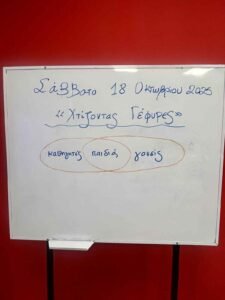 Σάββατο 18 Οκτωβρίου 2025
"Χτίζοντας Γέφυρες"
καθηγητές παιδιά γονείς